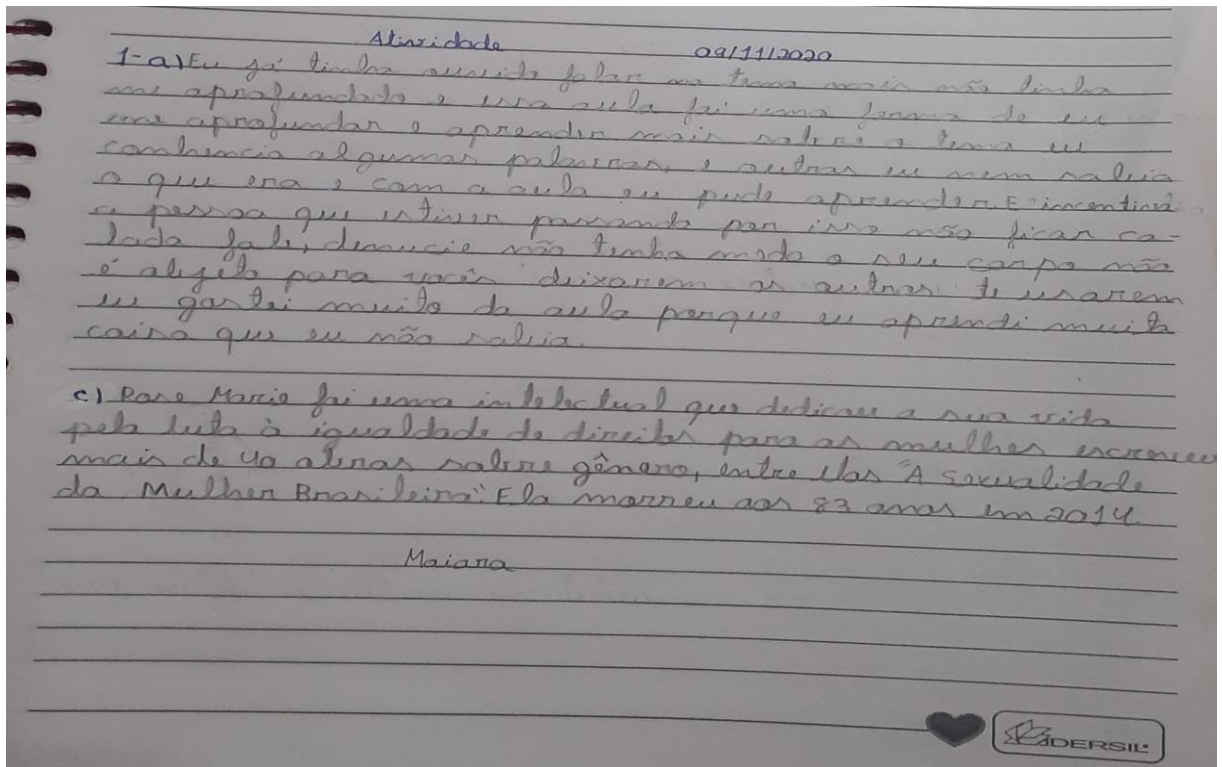 Atividade 09/11/2020
1-a) Eu já tinha ouvido falar no tema mais não tinha
me aprofundado e essa aula foi uma forma de eu
me aprofundar e aprender mais sobre o tema eu
conhencia algumas palavras, e outras eu nem sabia
o que era e com a aula eu pude aprender. E incentiva
a pessoa que estiver passando por isso não ficar ca-
lada fale, denuncie não tenha medo o seu corpo não
é objeto para vocês deixarem os outros te usarem
eu gostei muito da aula porque eu aprendi muita
coisa que eu não sabia.
c) Rose Marie foi uma intelectual que dedicou a sua vida
pela luta à igualdade de direitos para as mulher escreveu
mais de 40 obras sobre gênero, entre elas "A Sexualidade
da Mulher Brasileira". Ela morreu aos 83 anos em 2014.
Maiara
IDERSIL